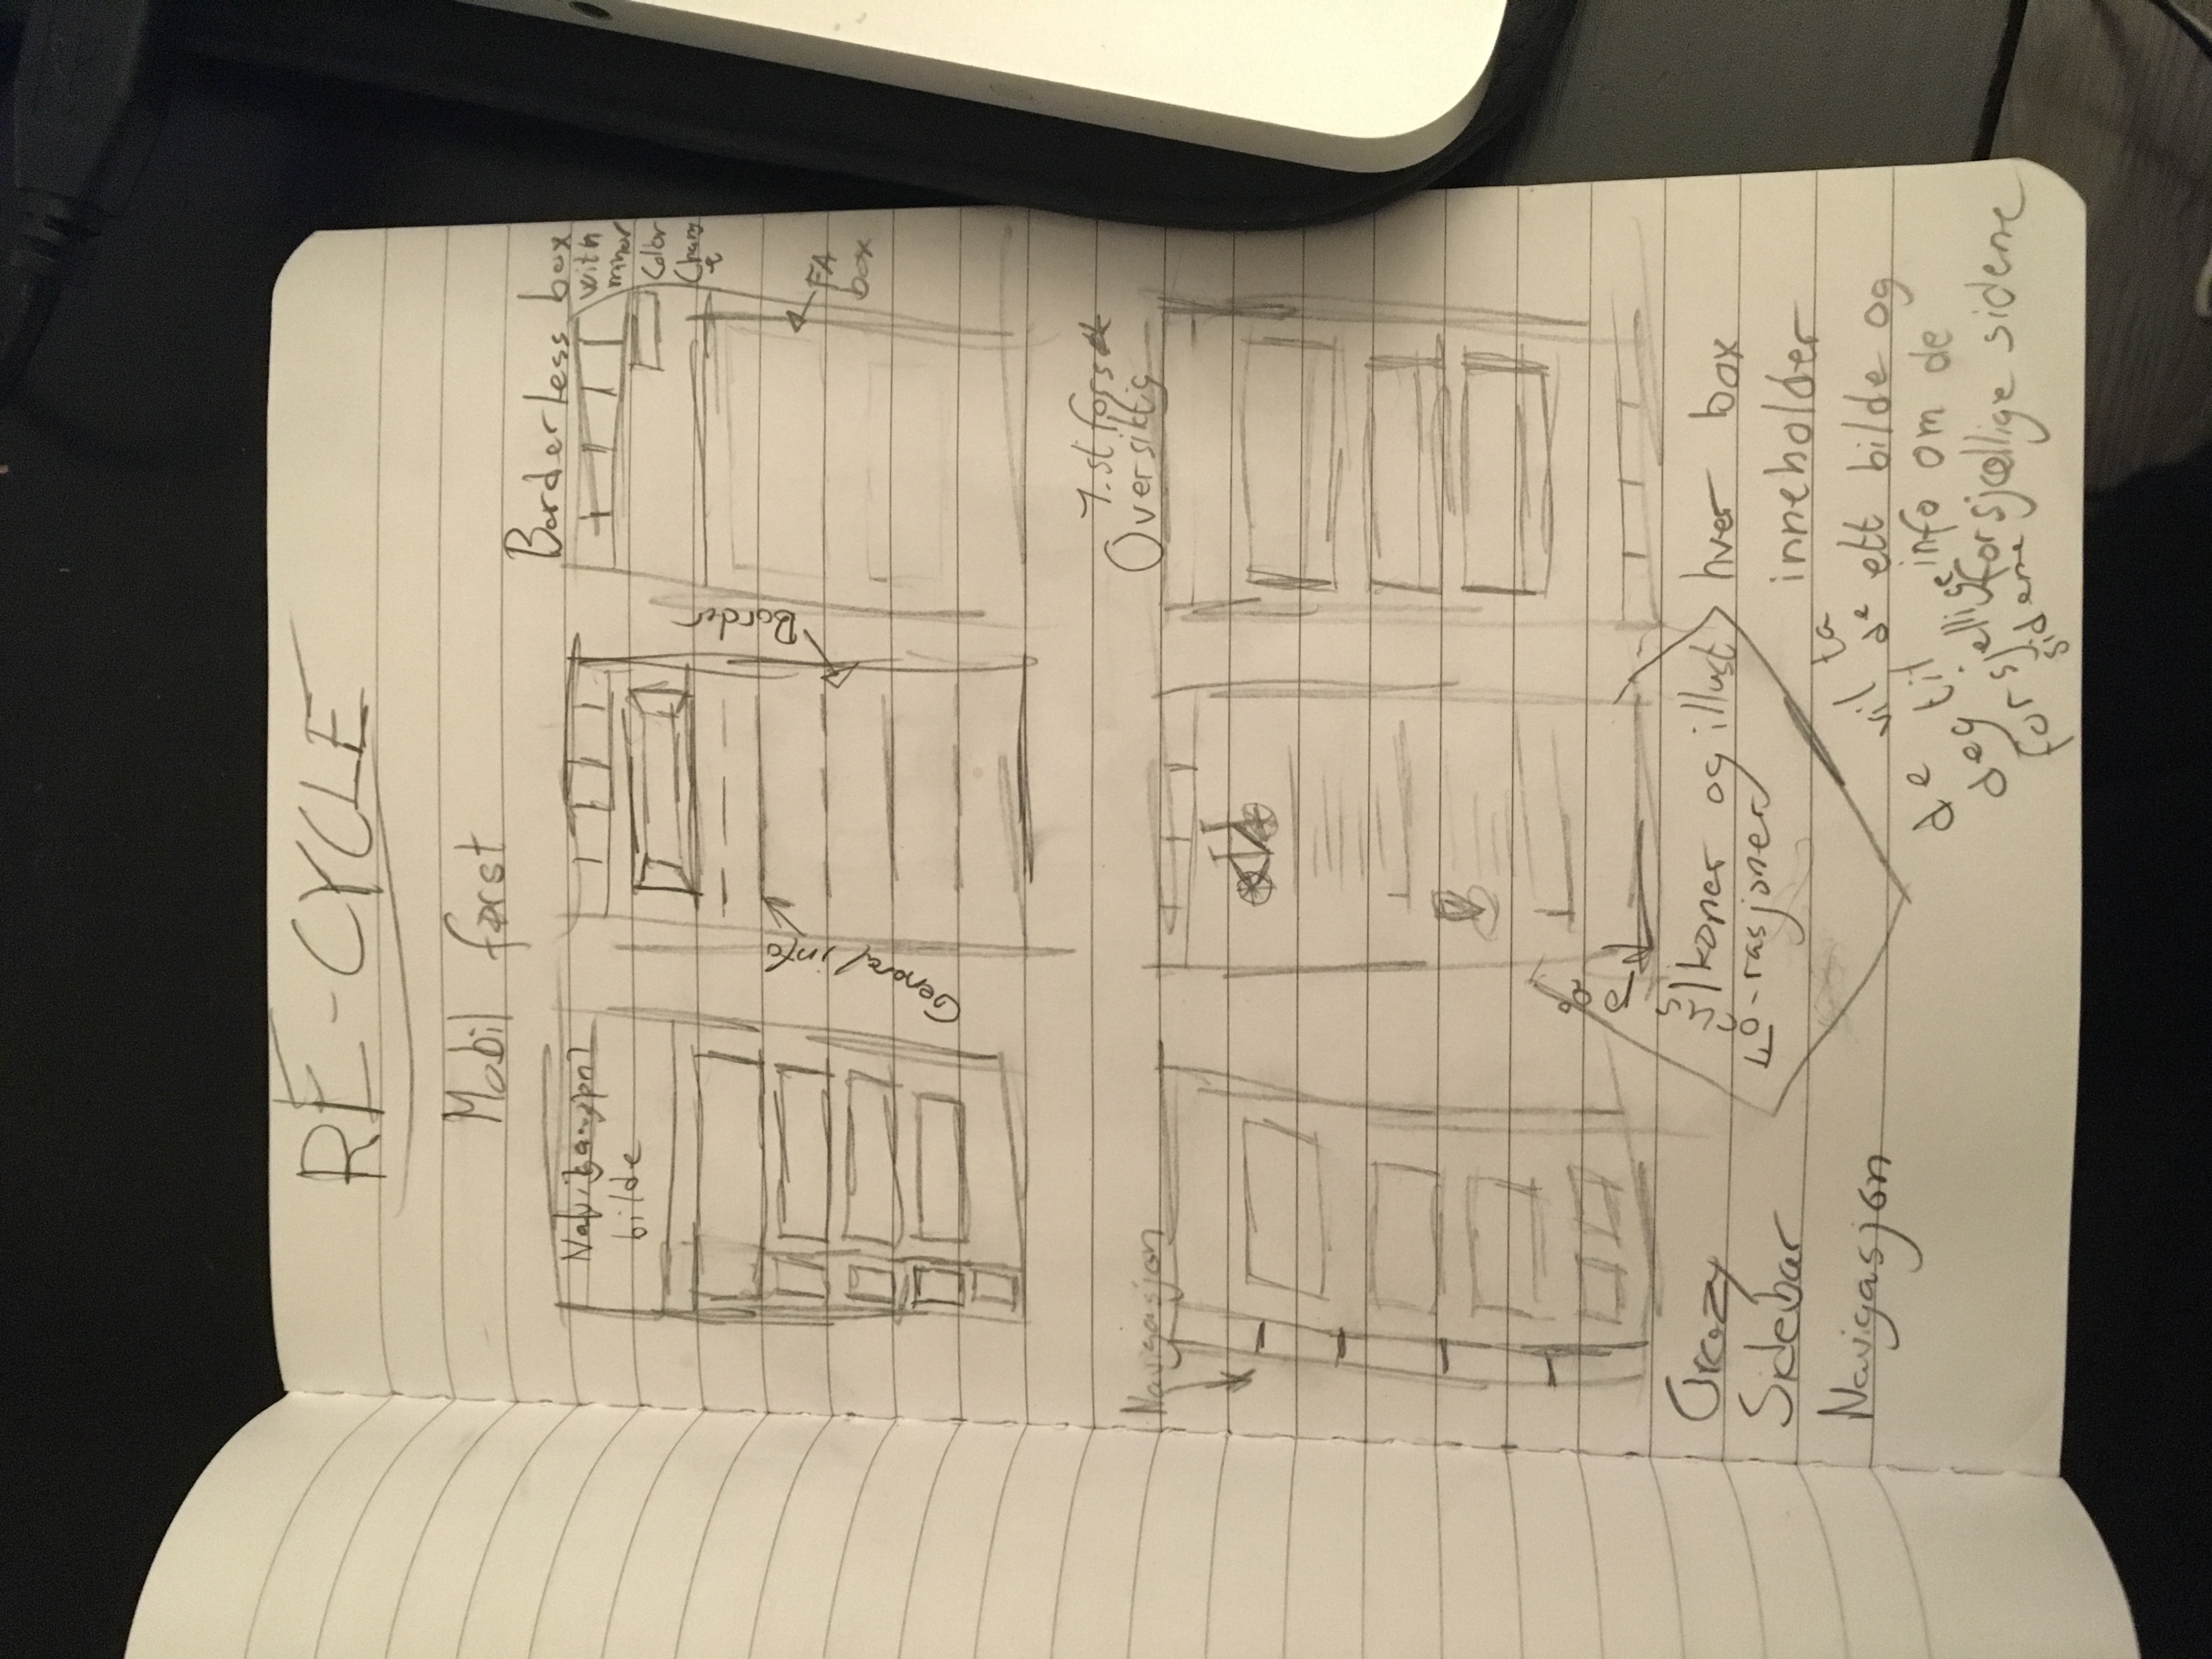 RE-CYCLE
Mobil først
Navigasjon
bilde
General info
Border
Borderless box
with
minor
Color
Chang
e
FA
box
Navigasjon
1.st
Oversiktig
Crazy
Sidebar
Navigasjon
Focus på
Ikoner og illust
-rasjoner
hver box
inneholder
ett bilde og
info om de
forsjællige sidene
de vil ta
deg til de
forsjellige
sidene